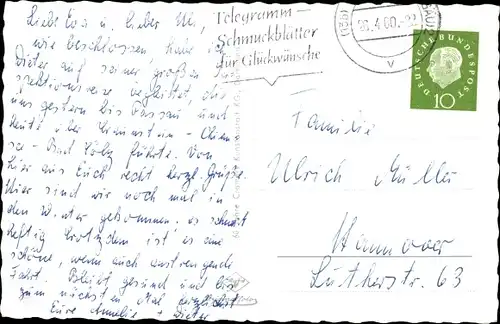 Liebe Eva u. lieber Uli,
wie beschlossen, habe ich
Dieter auf seiner großen In-
spektionsreise begleitet, die
uns gestern bis Passau und
heute über Traunstein - Chiem-
see - Bad Tölz führte. Von
hier aus Euch recht herzl. Grüße.
Hier sind wir noch mal in
den Winter gekommen, es schneit
heftig trotzdem ist es eine
schöne, wenn auch anstrengende
Fahrt. Bleibt gesund und bis
zum nächsten Mal herzlichst
Eure Amelie + Dieter
Telegramm-
Schmuckblätter
für Glückwünsche
DEUTSCHE BUNDESPOST
10
Familie
Ulrich Müller
Hannover
Lutherstr. 63